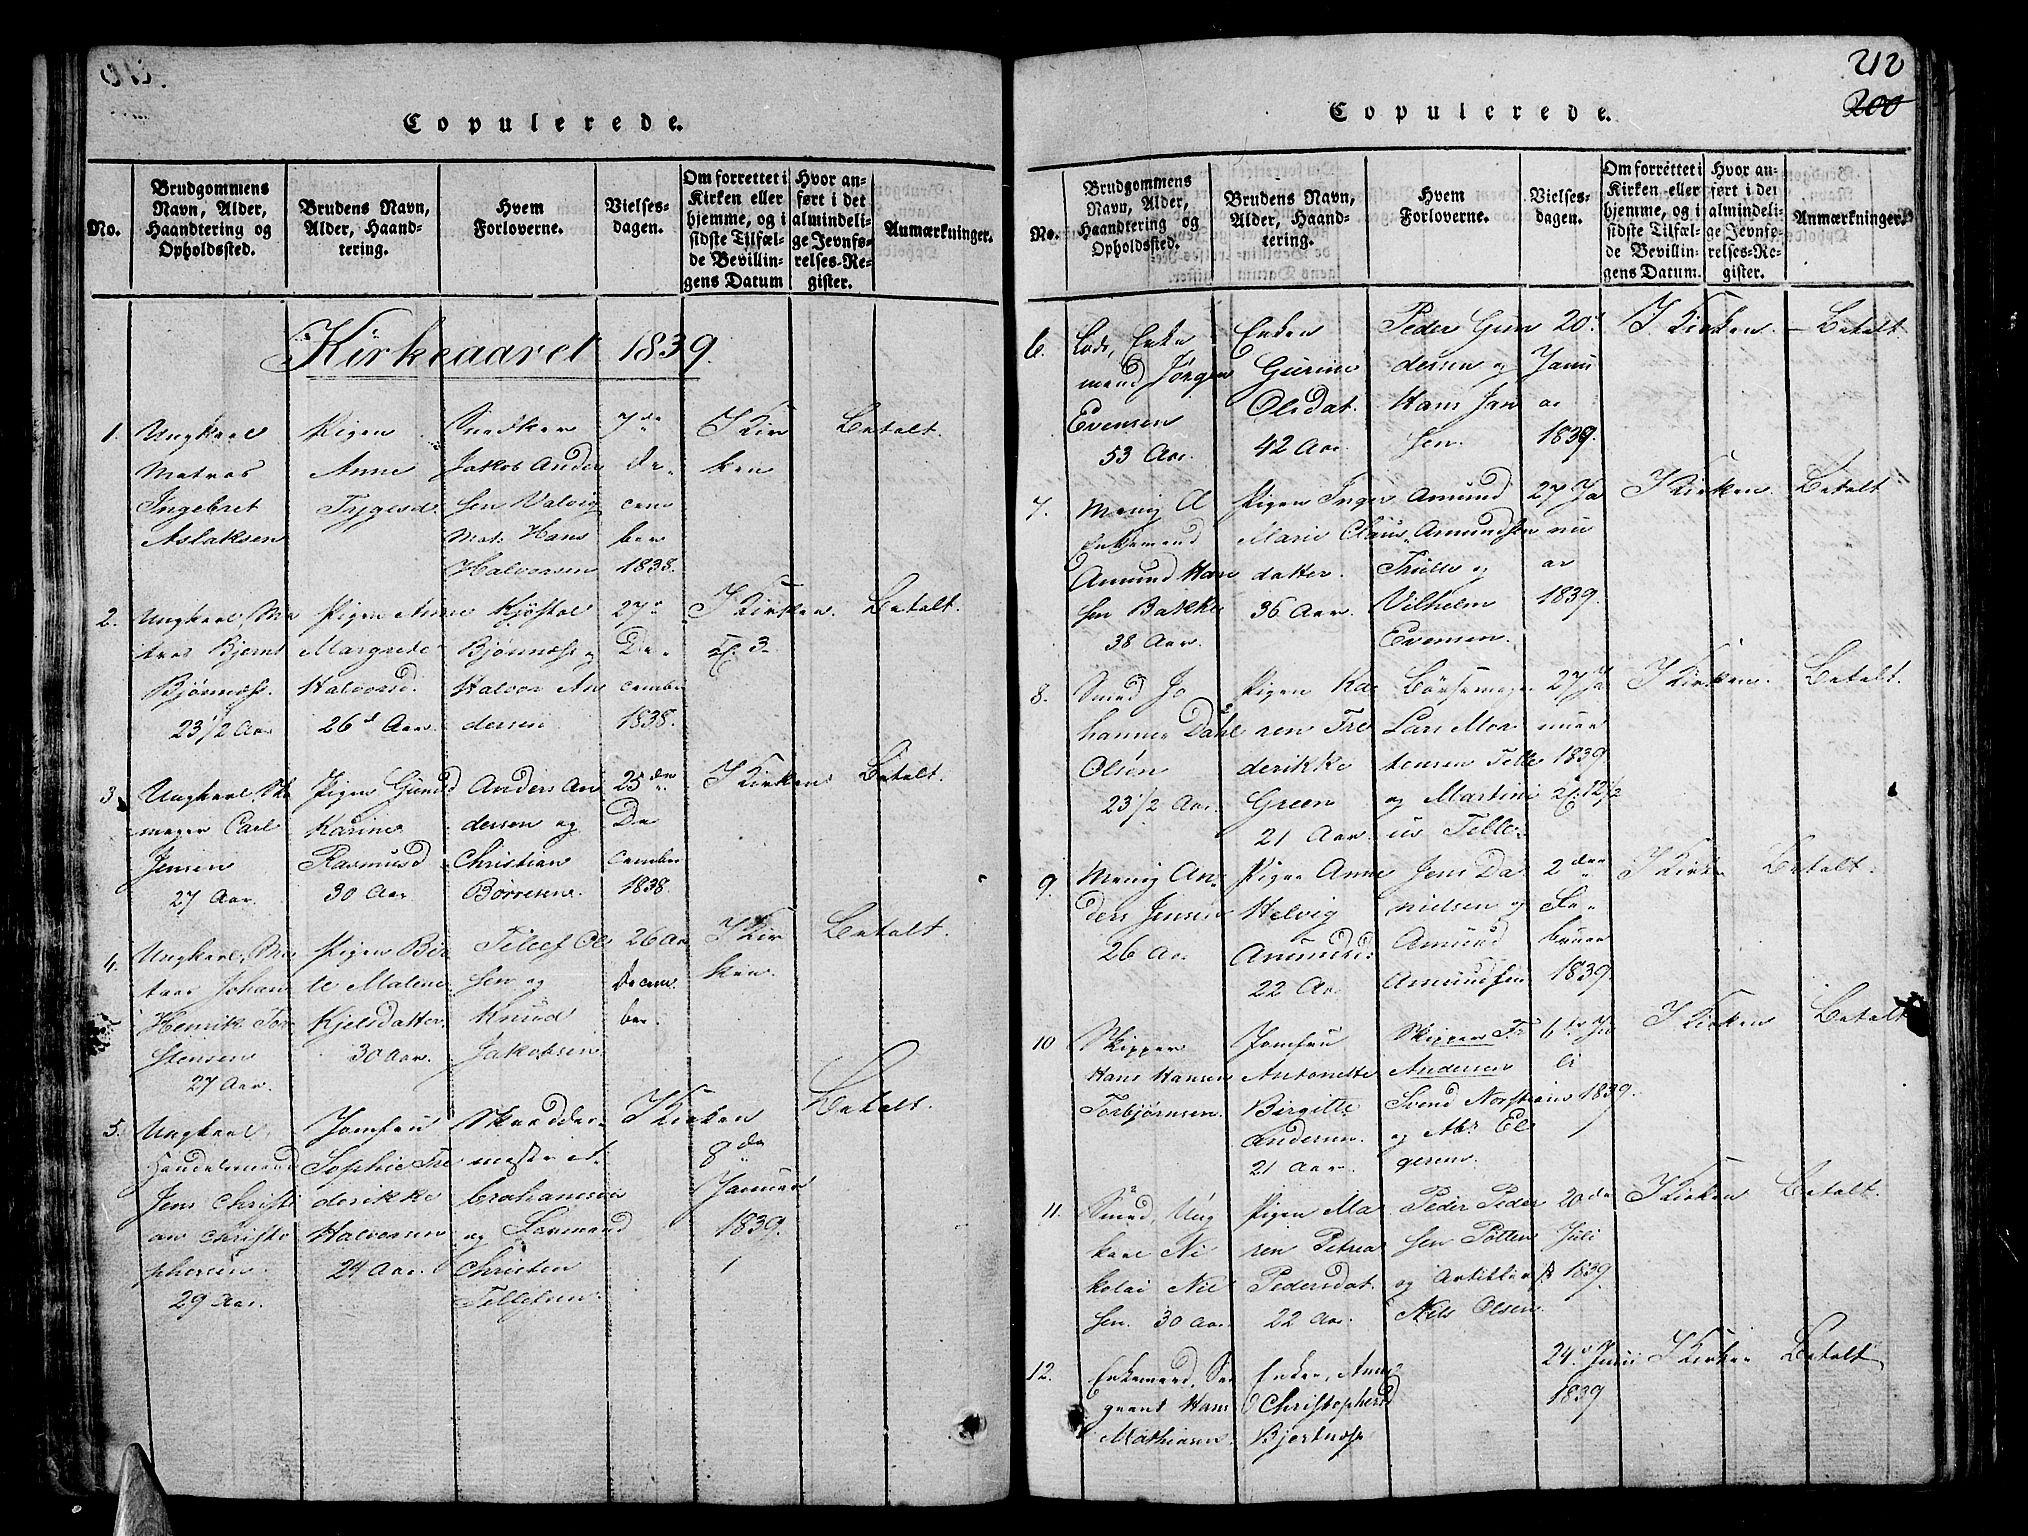 Copulerede.
No.
Brudgommens
Navn, Alder,
Haandtering og
Opholdssted.
Brudens Navn,
Alder, Haand-
tering.
Hvem
Forloverne.
Vielses-
dagen.
Om forrettet i
Kirken eller
hjemme, og i
sidste Tilfæl-
de Bevillin-
gens Datum
Hvor an-
ført i det
almindeli-
ge Jevnfø-
relses-Re-
gister.
Anmærkninger.
Kirkeaaret 1839.
1.
Ungkarl
Matros
Ingebret
Aslaksen
Pigen
Anne
Tygesd.
Snedker
Jakob Ander
sen Valvig
Mat. Hans
Halvorsen
7de
De-
cem
ber
1838.
I Kir
ken
Betalt.
2.
Ungkarl, Ma
tros Bjernt
Bjørnæss.
23 1/2 Aar
Pigen Anne
Margrede
Halvorsd.
26 Aar
Kjøstol
Bjønnæss og
Halvor An
dersen
27
De-
cember
1838.
I Kirken
3
Betalt.
3.
Ungkarl, Sko
mager Carl
Jensen
27 Aar.
Pigen Gunild
Karine
Rasmusd
30 Aar
Anders An
dersen og
Christian
Børresen.
25de
De
cember
1838.
I Kirken
Betalt.
4.
Ungkarl, Ma
tros Johan
Henrik Tor
stensen
27 Aar.
Pigen Bir
te Malene
Kjelsdatter.
30 Aar.
Tellef Ol
sen og
Knud
Jakobsen
26
Decem
ber.
I Kir
ken.
Betalt.
5.
Ungkarl,
Handelsmand
Jens Christi
an Christo
phersen.
29 Aar.
Jomfru
Sophie Fre
derikke
Halvorsen
24 Aar.
Skrædder-
mester
brahamsen
og
Christen
Tellefsen.
I Kirken
8de
Januar
1839.
Betalt.
212
200
Copulerede.
No.
Brudgommens
Navn, Alder,
Haandtering og
Opholdssted.
Brudens Navn,
Alder, Haand-
tering.
Hvem
Forloverne.
Vielses-
dagen.
Om forrettet i
Kirken eller
hjemme, og i
sidste Tilfæl-
de Bevillin-
gens Datum.
Hvor an-
ført i det
almindeli-
ge Jevnfø-
relses-Re-
gister.
Anmærkninger.
6.
Lods, Enke
mand Jørgen
Evensen
53 Aar.
Enken
Gurine
Olsdat.
42 Aar.
Peder Gun
dersen og
Hans Jan
sen.
20
Janu
ar
1839.
I Kirken.
Betalt.
7.
Menig A
Enkemand
Amund Han
sen Bakke
38 Aar.
Pigen Inger
Marie Claus
datter.
36 Aar.
Amund
Amundsen
og
Vilhelm
Evensen.
27 Ja
nu
ar
1839.
I Kirken.
Betalt
8.
Smed Jo
hannes Dahl
Olsen
23 1/2 Aar.
Pigen Ka
ren Fre
derikke
Green
21 Aar.
Bøssemager
Lars Mor
tensen Telle
og Martini
us Telle.
27 Ja
nuar
1839
I Kirken.
Betalt.
9.
Menig An-
ders Jensen
26 Aar.
Pigen Anne
Helvig
Amundsd.
22 Aar
Jens Da
nielsen og
Amund
Amundsen
2den
Fe-
bruar
1839.
I Kirken
Betalt.
10
Skipper
Hans Hansen
Torbjørnsen.
Jomfru
Antonette
Birgitte
Andersen.
21 Aar.
Skipper Fr
Andersen
Svend
og Abr. El
gersen.
6te Ju
li
1839.
I Kirken
Betalt.
11.
Smed, Ung
karl Ni
kolai Niel
sen. 30 Aar.
Pigen Ma
ren Petrea
Pedersdat.
22 Aar.
Peder Peder
sen Potter
og Artillerist
Niels Olsen
20de
Juli
1839.
I Kirken
Betalt.
12.
Enkemand, Ser
geant Hans
Mathiesen.
Enken, Anne
Christophersd
Bjertnæss
24 Juni
1839
I Kirken
Betalt